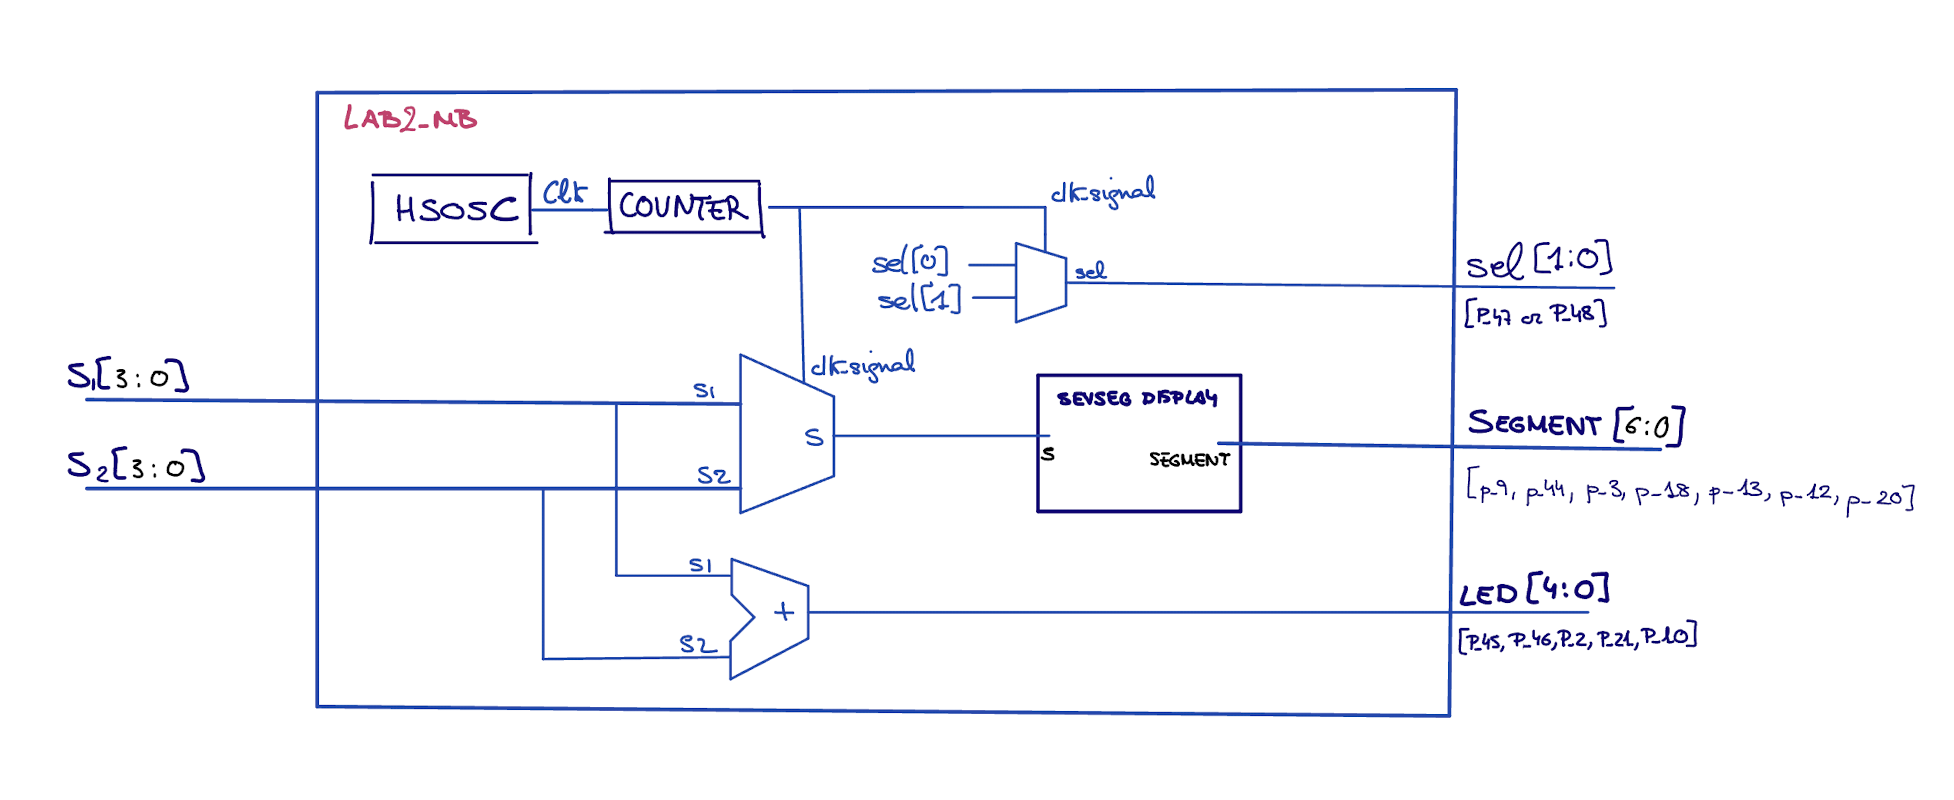 LAB2_MB
HSOSC
Clk
COUNTER
clk_signal
sel[0]
sel[1]
sel
sel[1:0]
[P_47 or P_48]
clk_signal
S1[3:0]
S1
S2[3:0]
S2
S
SEVSEG DISPLAY
S
SEGMENT
SEGMENT [6:0]
[p_9, p_44, p_3, p_18, p_13, p_12, p_20]
S1
S2
+
LED [4:0]
[P_45, P_46, P_2, P_21, P_10]